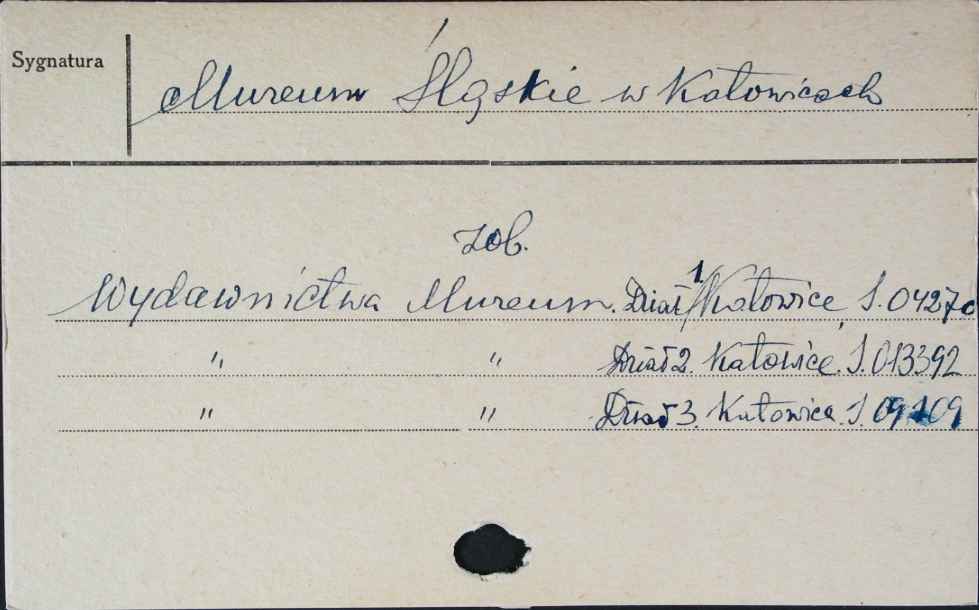 Sygnatura
Muzeum Śląskie w Katowicach
zob.
Wydawnictwa Muzeum. Dział 1 Katowice S. 04270
" " Dział 2. Katowice. S. 013392
" " Dział 3. Katowice. S.